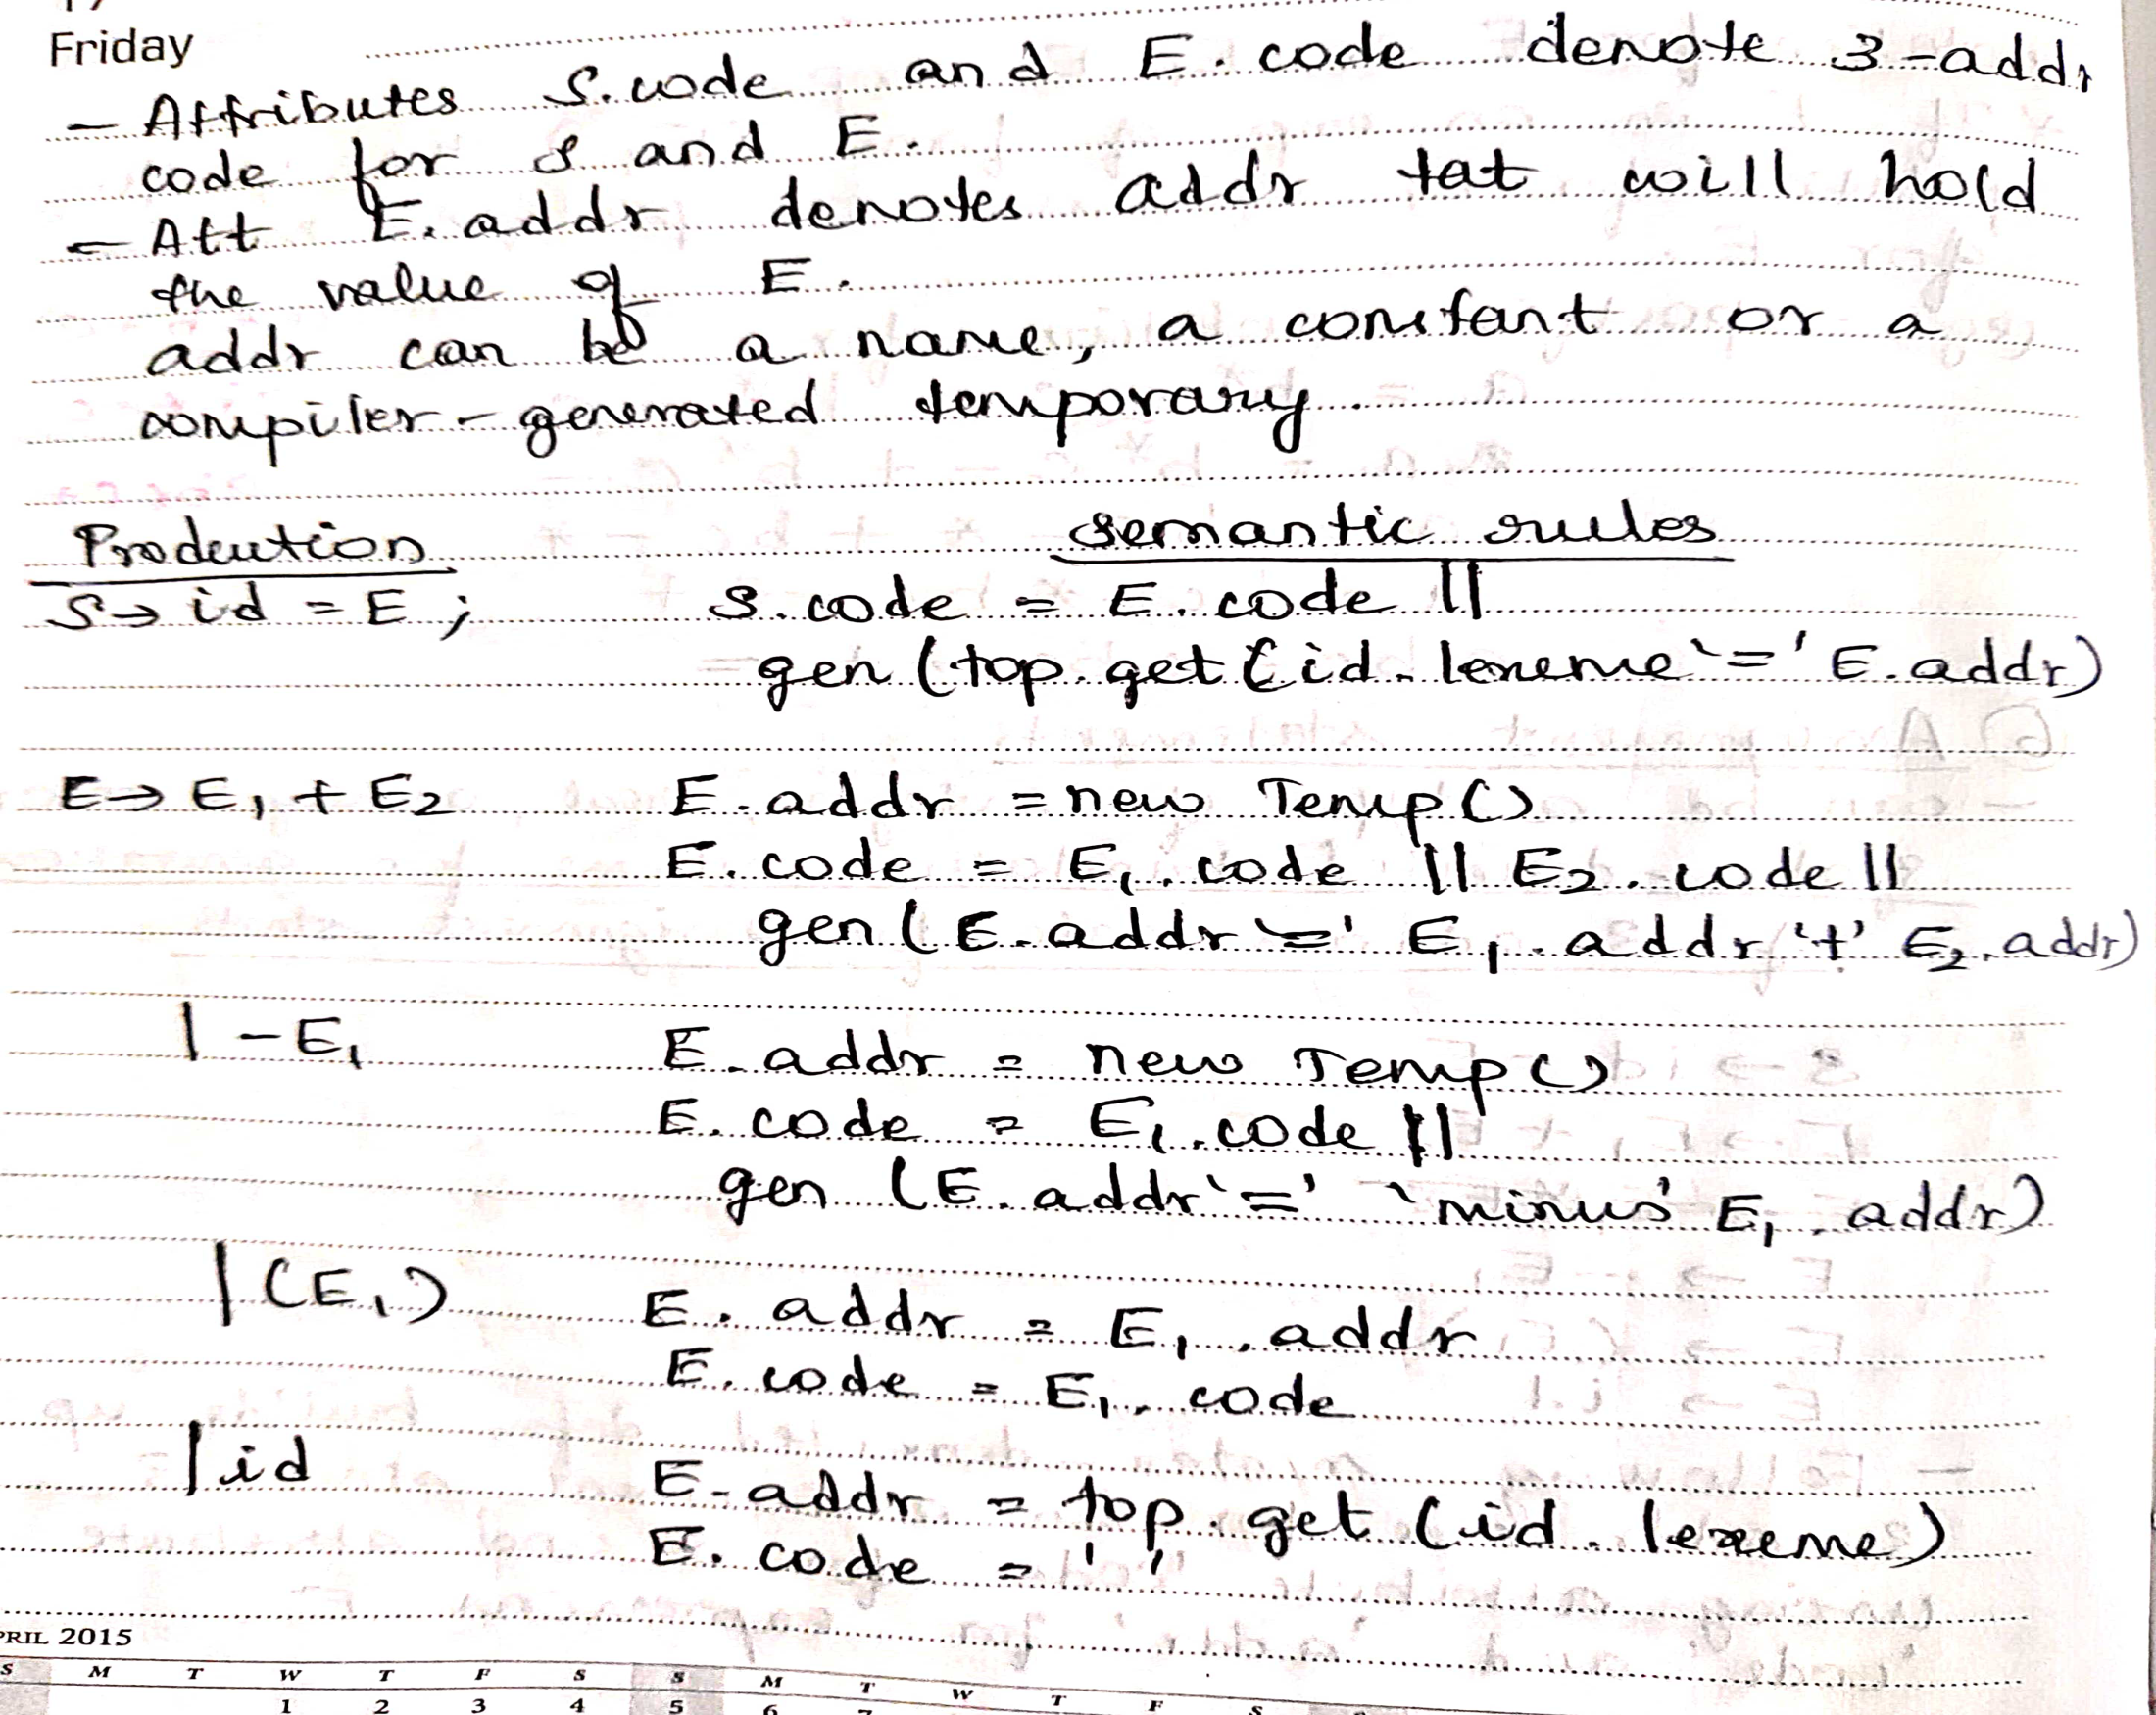 Friday
- Attributes S.code and E.code denote 3-addr
code for S and E.
- Att E.addr denotes addr tat will hold
the value of E.
addr can be a name, a constant or a
compiler-generated temporary.
Prodeution semantic rules
S→ id = E ; S.code = E.code ||
gen (top.get(id.lexeme '=' E.addr)
E→ E1 + E2 E.addr = new Temp()
E.code = E1.code || E2.code ||
gen (E.addr '=' E1.addr '+' E2.addr)
| -E1 E.addr = new Temp()
E.code = E1.code ||
gen (E.addr '=' 'minus' E1.addr)
| (E1) E.addr = E1.addr
E.code = E1.code
| id E.addr = top.get (id.lexeme)
E.code = ' '
PRIL 2015
S M T W T F S S M T W T F S
1 2 3 4 5 6 7